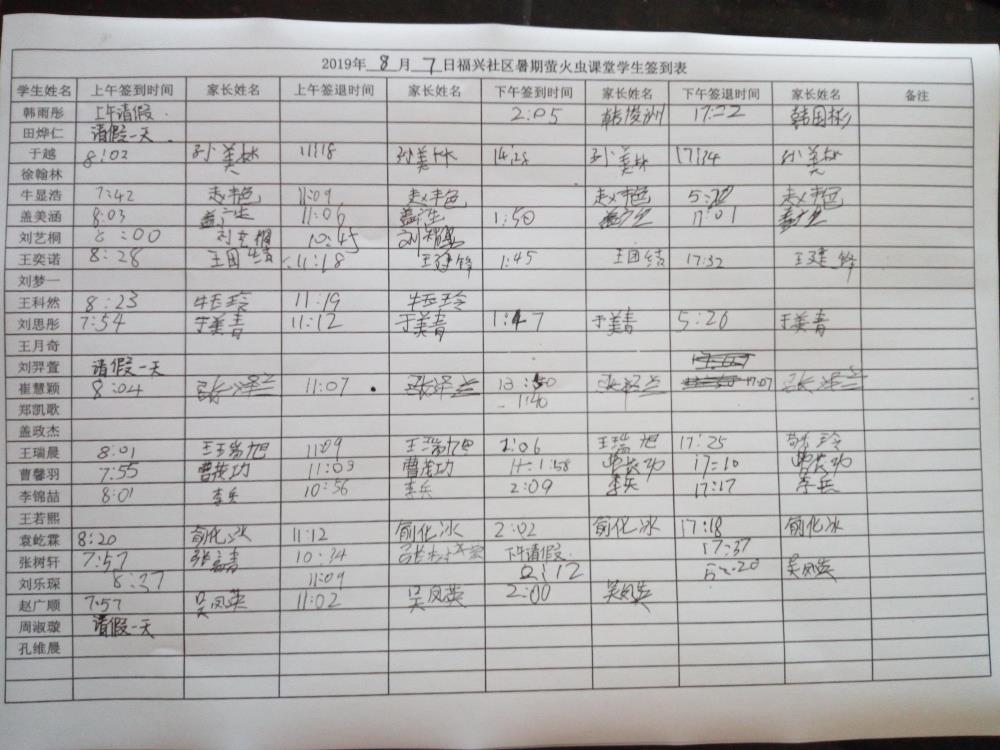 2019年 8 月 7 日福兴社区暑期萤火虫课堂学生签到表
学生姓名 上午签到时间 家长姓名 上午签退时间 家长姓名 下午签到时间 家长姓名 下午签退时间 家长姓名 备注
韩雨彤 上午请假 2:05 韩俊洲 17:22 韩国彬
田烨仁 请假一天
于越 8:02 孙美林 11:18 孙美林 14:28 孙美林 17:34 孙美林
徐翰林
牛显浩 7:42 赵丰色 11:09 赵丰色 赵丰色 赵丰色
盖美涵 8:03 盖广生 11:06 盖广生 1:50 盖广生 17:01
刘艺桐 8:00 刘艺桐 10:45
王奕诺 8:28 王团结 11:18 王建锋 1:45 王团结 17:32 王建锋
刘梦一
王科然 8:23 牛玉玲 11:19 牛玉玲
刘思彤 7:54 于美青 11:12 于美青 1:47 于美青 5:26 于美青
王月奇
刘羿萱 请假一天
崔慧颖 8:04 张泽兰 11:07 张泽兰 张泽兰 17:07 张泽兰
郑凯歌 1:40
盖政杰
王瑞晨 8:01 王瑞旭 11:09 王瑞旭 2:06 王瑞旭 17:25
曹馨羽 7:55 曹茂功 11:09 曹茂功 1:58 曹茂功 17:10 曹茂功
李锦喆 8:01 李兵 10:56 李兵 2:09 李兵 17:17 李兵
王若熙
袁屹霖 8:20 俞化冰 11:12 俞化冰 2:02 俞化冰 17:18 俞化冰
张树轩 7:57 10:34 下午请假 17:37
刘乐琛 8:37 11:09 2:12 5:20 吴凤英
赵广顺 7:57 吴凤英 11:02 吴凤英 2:00 吴凤英
周淑璇 请假一天
孔维晨